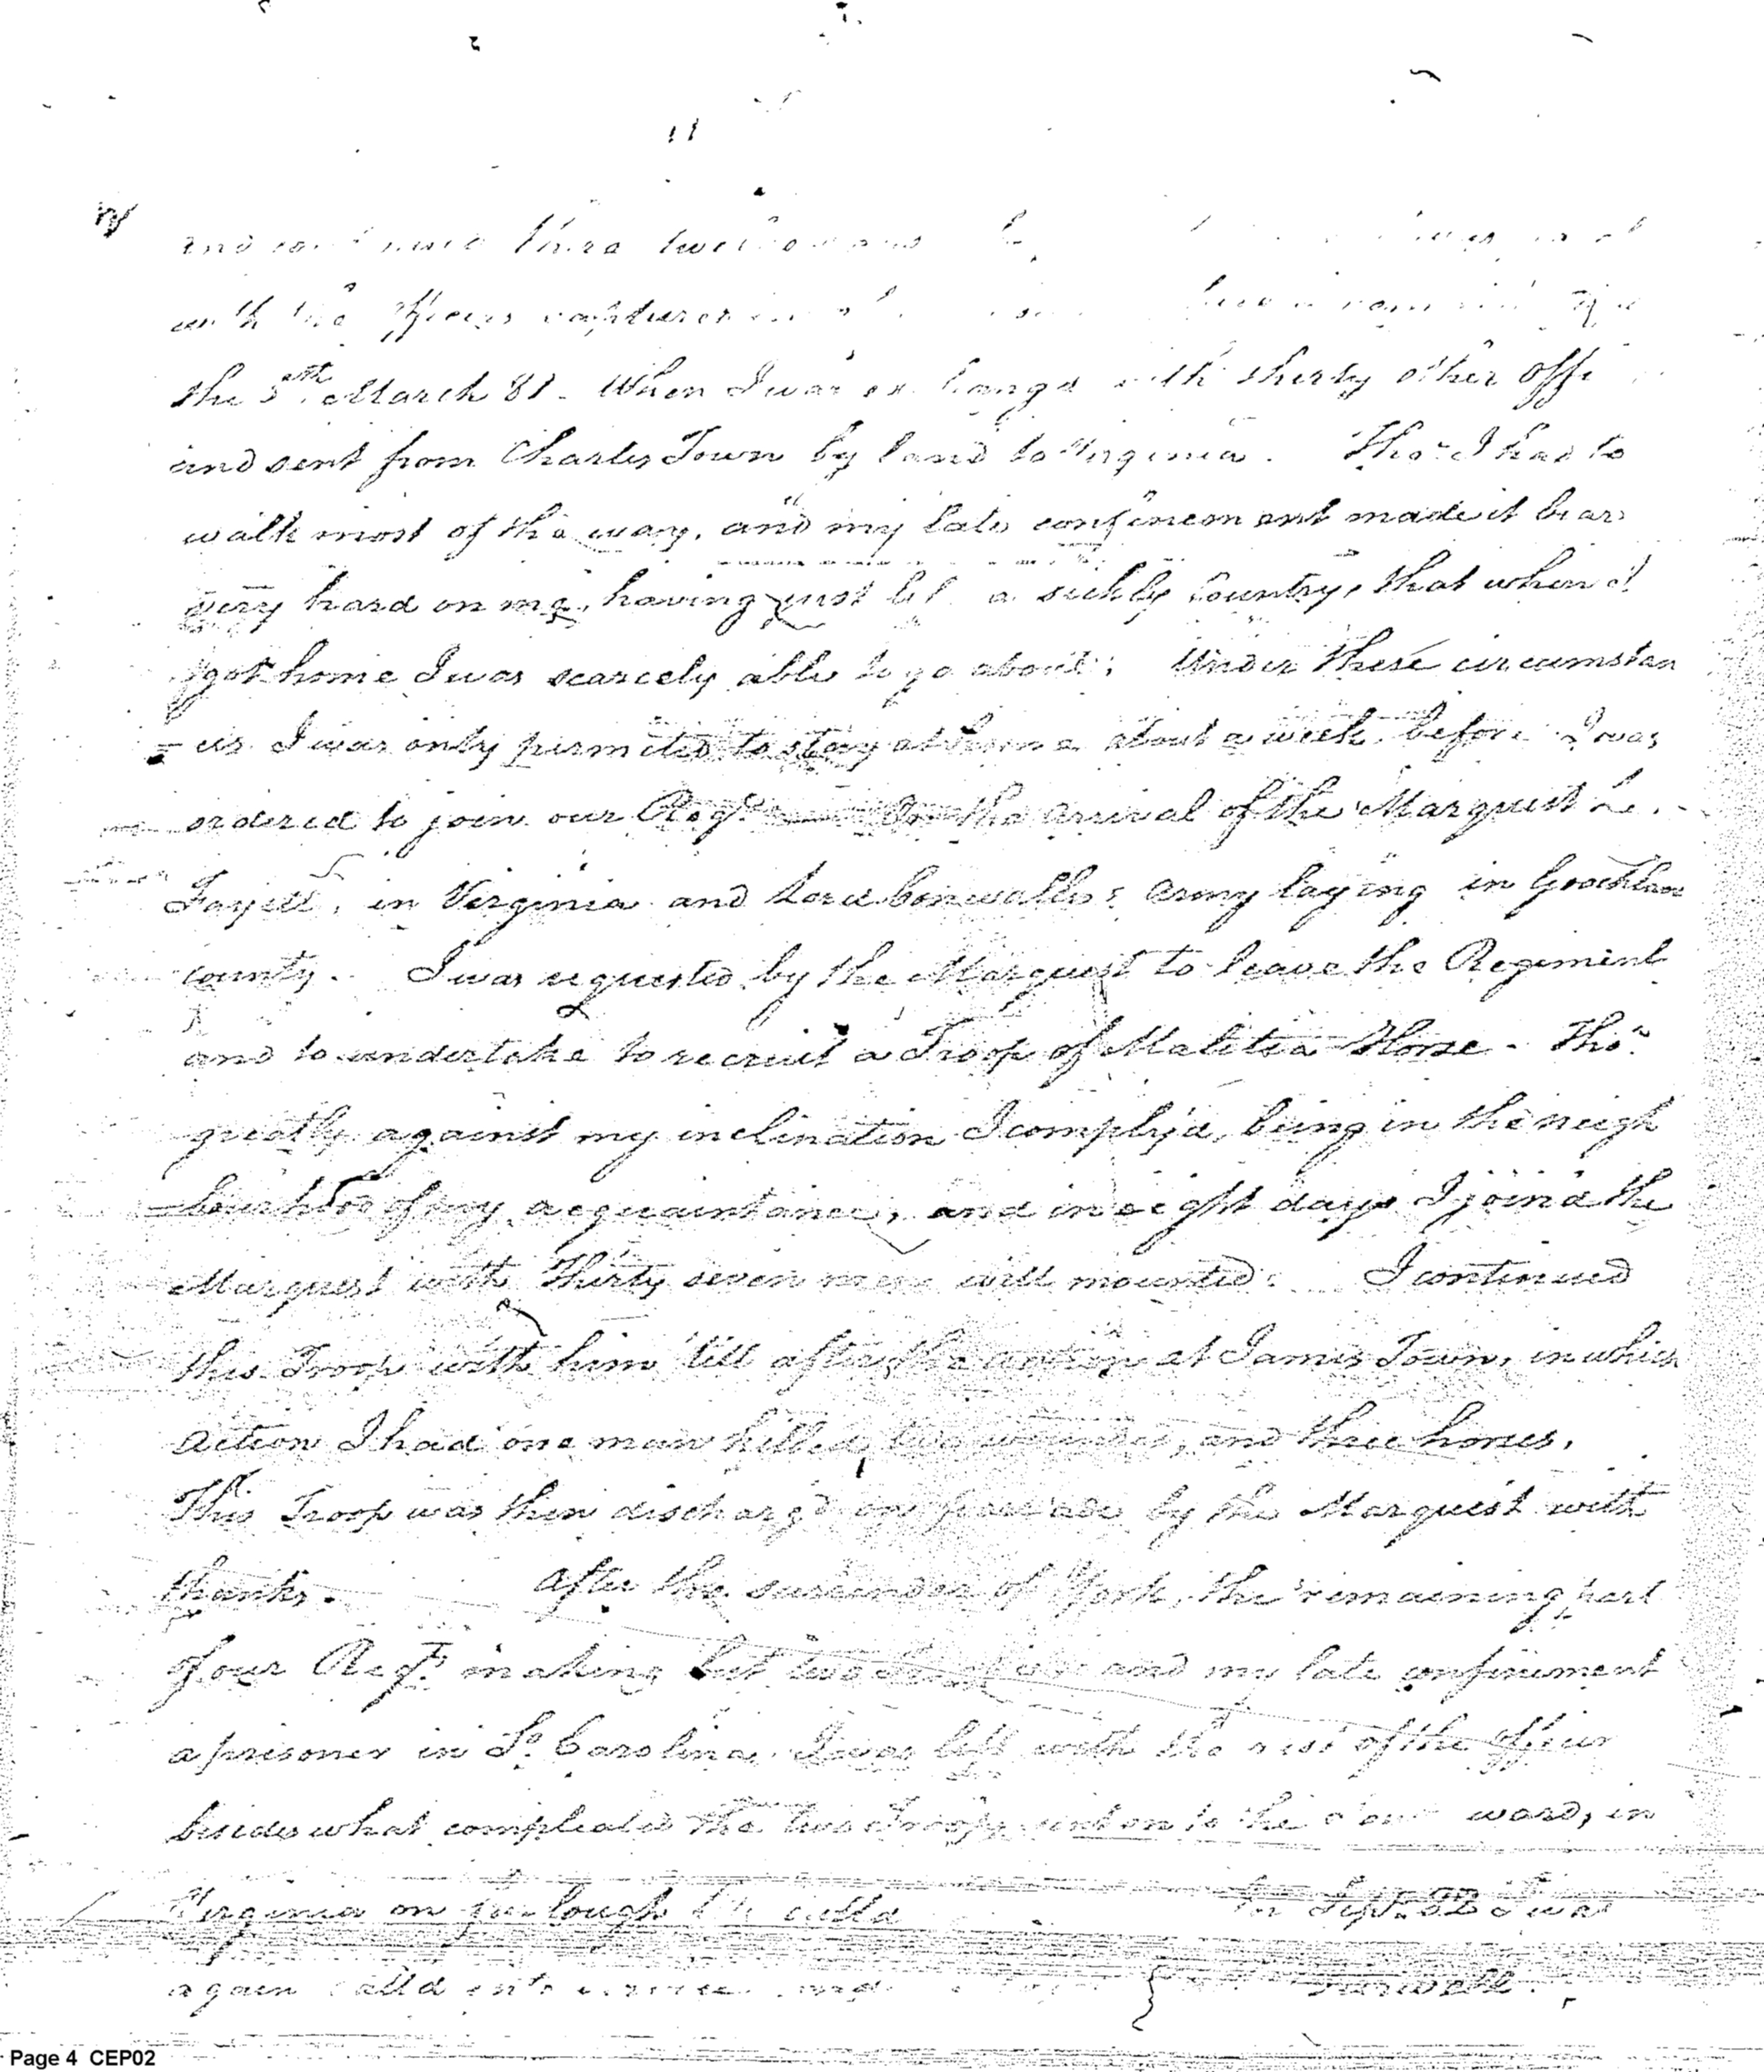 and three twelve
with the Officers captured
the 5th March 81. When I was with thirty other Offi
and sent from Charles Town by land to Virginia. Tho' I had to
walk most of the way, and my late confinement made it bear
very hard on me, having just a sickly Country, that when I
got home I was scarcely able to go about; Under these circumstan
= ces I was only permited to stay at home about a week before I was
ordered to join our Regt. On the arrival of the Marquest
Fayett, in Virginia and Lord Cornwallis's army laying in Goochland
county. I was requested by the Marquest to leave the Regiment
and to undertake to recruit a Troop of Malitia Horse - Tho'
greatly against my inclination I comply'd, being in the neigh
bourhood of my acquaintance, and in eight days I join'd the
Marquest with Thirty seven men well mounted. I continued
this Troop with him till after the action at James Town, in which
action I had one man killed, two wounded, and three horses.
This Troop was then discharg'd on parade by the Marquest with
thanks. After the surrender of York, the remaining part
of our Regt. making but two and my late confinement
a prisoner in So. Carolina, I was left with the rest of the Officers
besides what compleated the two Troops sent on to the ward, in
Virginia on furlough till call'd In Sept. 82 I was
again call'd into
Page 4 CEP02